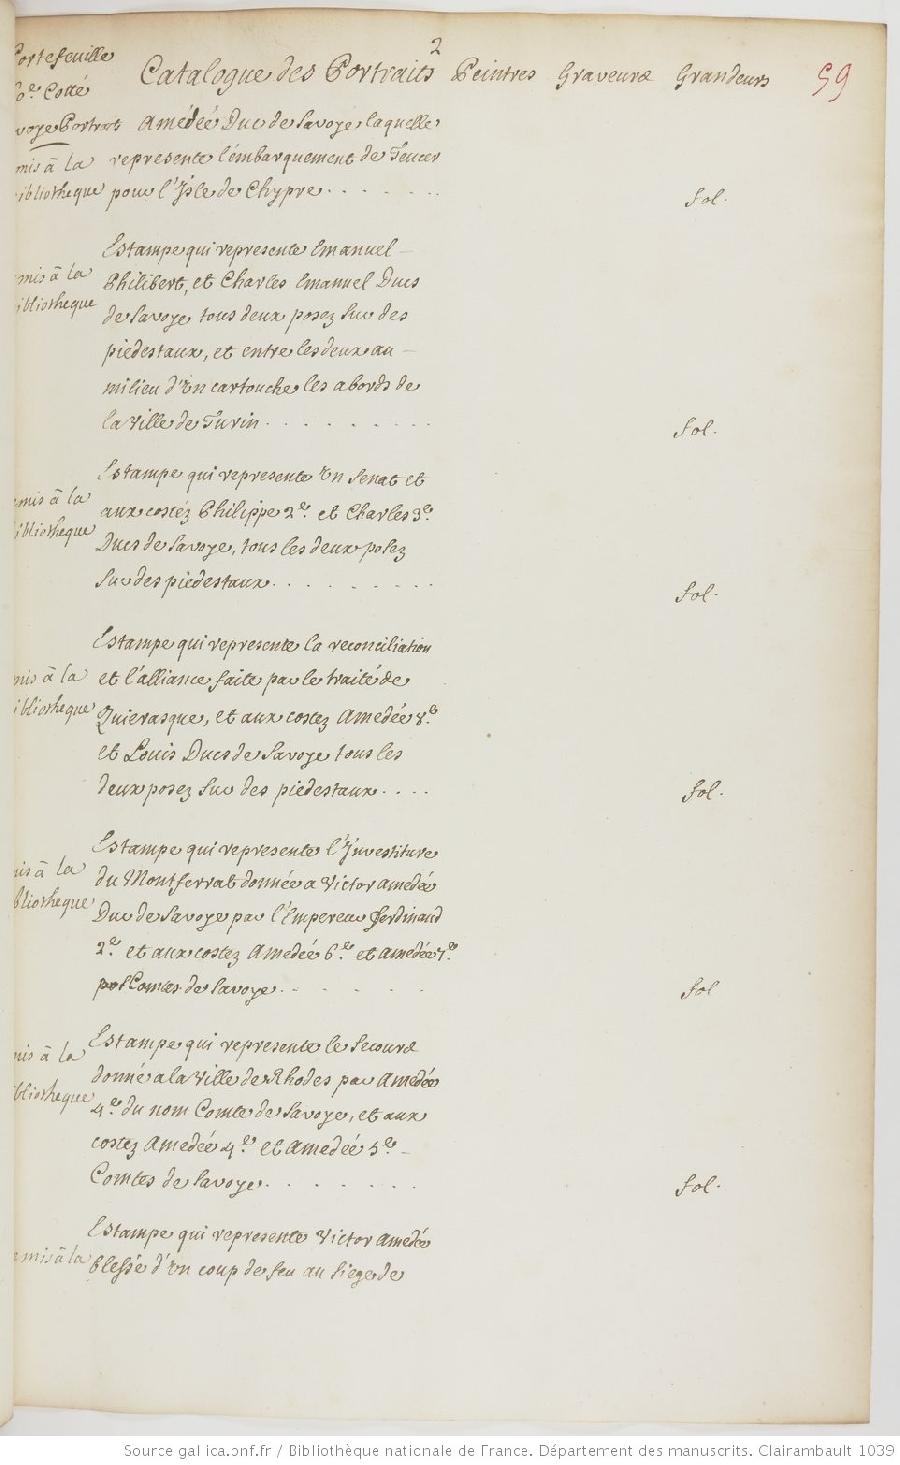 2
Portefeuille
Catalogue des Portraits Peintres Graveurs Grandeurs 59
Cotté
Portrait Amédéé Duc de Savoye, laquelle
mis à la represente l'embarquement de Teucer
bibliotheque pour l'Isle de Chypre . . . . . . fol.
Estampe qui represente Emanuel
mis à la Philibert, et Charles Emanuel Ducs
bibliotheque de Savoye tous deux posez sur des
piédestaux, et entre les deux au
milieu d'Un cartouche les abords de
la Ville de Turin . . . . . . fol.
Estampe qui represente Un Senat et
mis à la aux costéz Philippe 2e. et Charles 3e.
bibliotheque Ducs de Savoye, tous les deux posez
sur des piédestaux . . . . . . fol.
Estampe qui represente la reconciliation
mis à la et l'alliance faite par le traité de
bibliotheque Quierasque, et aux costez Amedée 8.e
et Louis Ducs de Savoye tous les
deux posez sur des piedestaux . . . . fol.
Estampe qui represente l'Investiture
mis à la du Montferrat donnée a Victor Amedée
bibliotheque Duc de Savoye par l'Empereur Ferdinand
2.e et aux costez Amedée 6.e et Amedée 7.e
Comtes de Savoye . . . . . . fol
Estampe qui represente le secours
mis à la donné a la Ville de Rhodes par Amedée
bibliotheque 4.e du nom Comte de Savoye, et aux
costez Amedée 4.e et Amedée 5.e
Comtes de Savoye . . . . . . fol.
Estampe qui represente Victor Amedée
mis à la blessé d'Un coup de feu au siege de
Source gallica.bnf.fr / Bibliothèque nationale de France. Département des manuscrits. Clairambault 1039